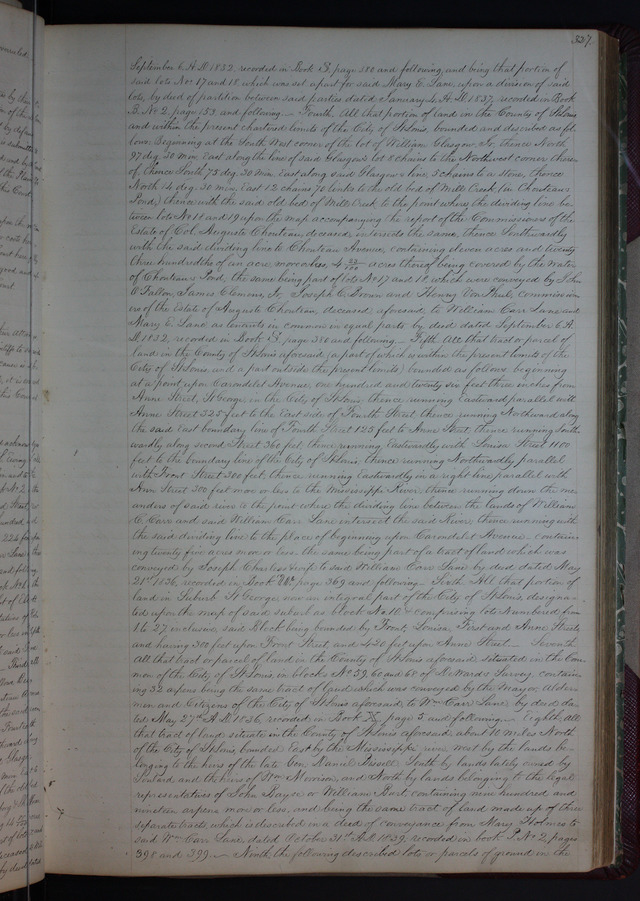 327
September 6. A.D. 1832, recorded in Book S, page 380 and following, and being that portion of
said lots Nos 17 and 18 which was set apart for said Mary E. Lane, upon a division of said
lots, by deed of partition between said parties dated January 4, A.D. 1837, recorded in Book
B. No 2, page 153, and following. Fourth. All that portion of land in the County of St Louis
and within the present chartered limits of the City of St Louis, bounded and described as fol
lows. Beginning at the South West corner of the lot of William Glasgow, Jr, thence North
deg. 30 min. East along the line of said Glasgow's lot 8 chains to the Northwest corner there
of, thence South 75 deg. 30 min. East along said Glasgow's line 3 chains to a stone, thence
North 14 deg. 30 min. East 12 chains 70 links to the old bed of Mill Creek (in Chouteau's
Pond) thence with the said old bed of Mill Creek to the point where the dividing line be
tween lots No 18 and 19 upon the map accompanying the report of the Commissioners of the
Estate of Col. Auguste Chouteau, deceased, intersects the same, thence Southwardly
with the said dividing line to Chouteau Avenue, containing eleven acres and twenty
three hundredths of an acre, more or less, 4 acres thereof being covered by the water
of Chouteau's Pond, the same being part of lots No 17 and 18 which were conveyed by John
O'Fallon, James Clemens, Jr, Joseph C. Brown and Henry Von Phul, Commission
ers of the Estate of Auguste Chouteau, deceased, aforesaid, to William Carr Lane and
Mary E. Lane as tenants in common in equal parts by deed dated September 6. A.
D. 1832, recorded in Book S, page 380 and following. Fifth. All that tract or parcel of
land in the County of St Louis aforesaid (a part of which is within the present limits of the
City of St Louis, and a part outside the present limits) bounded as follows: beginning
at a point upon Carondelet Avenue, one hundred and twenty six feet three inches from
Anne Street, St George, in the City of St Louis, thence running Eastward parallel with
Anne Street 325 feet to the East side of Fourth Street, thence running Northward along
the said East boundary line of Fourth Street 125 feet to Anne Street, thence running South
wardly along second Street 360 feet, thence running Eastwardly with Louisa Street 1100
feet to the boundary line of the City of St Louis, thence running Northwardly parallel
with Front Street 300 feet, thence running Eastwardly in a right line parallel with
Ann Street 300 feet more or less to the Mississippi River, thence running down the me
anders of said river to the point where the dividing line between the lands of William
C. Carr and said William Carr Lane intersect the said River, thence running with
the said dividing line to the place of beginning upon Carondelet Avenue, contain
ing twenty five acres more or less the same being part of a tract of land which was
conveyed by Joseph Charless to said William Carr Lane by deed dated May
21st 1836, recorded in Book page 369 and following. Sixth. All that portion of
land in Suburb St George now an integral part of the City of St Louis, designa-
ted upon the map of said suburb as block No. 10 & comprising lots Numbered from
1 to 27 inclusive, said Block being bounded by Front, Louisa, First and Anne Streets
and having 300 feet upon Front Street, and 420 feet upon Anne Street. Seventh
All that tract or parcel of land in the County of St Louis aforesaid, situated in the Com
mon of the City of St Louis, in blocks No 59, 60 and 68 of McWard's Survey, contain
ing 32 arpens being the same tract of land which was conveyed by the Mayor, Alder
men and Citizens of the City of St Louis aforesaid to Wm Carr Lane by deed da
ted May 27th A.D. 1836, recorded in Book page 5 and following. Eighth, all
that tract of land situate in the County of St Louis aforesaid, about 10 miles North
of the City of St Louis, bounded East by the Mississippi river, west by the lands be
longing to the heirs of the late Gen. Daniel Bissell, South by lands lately owned by
Soulard and the heirs of Wm Morrison, and North by lands belonging to the legal
representatives of John or William containing nine hundred and
nineteen arpens more or less, and being the same tract of land made up of three
separate tracts, which is described in a deed of conveyance from Mary Holmes to
said Wm Carr Lane, dated October 31st A.D. 1839, recorded in book P. No 2, pages
398 and 399. Ninth, the following described lots or parcels of ground in the